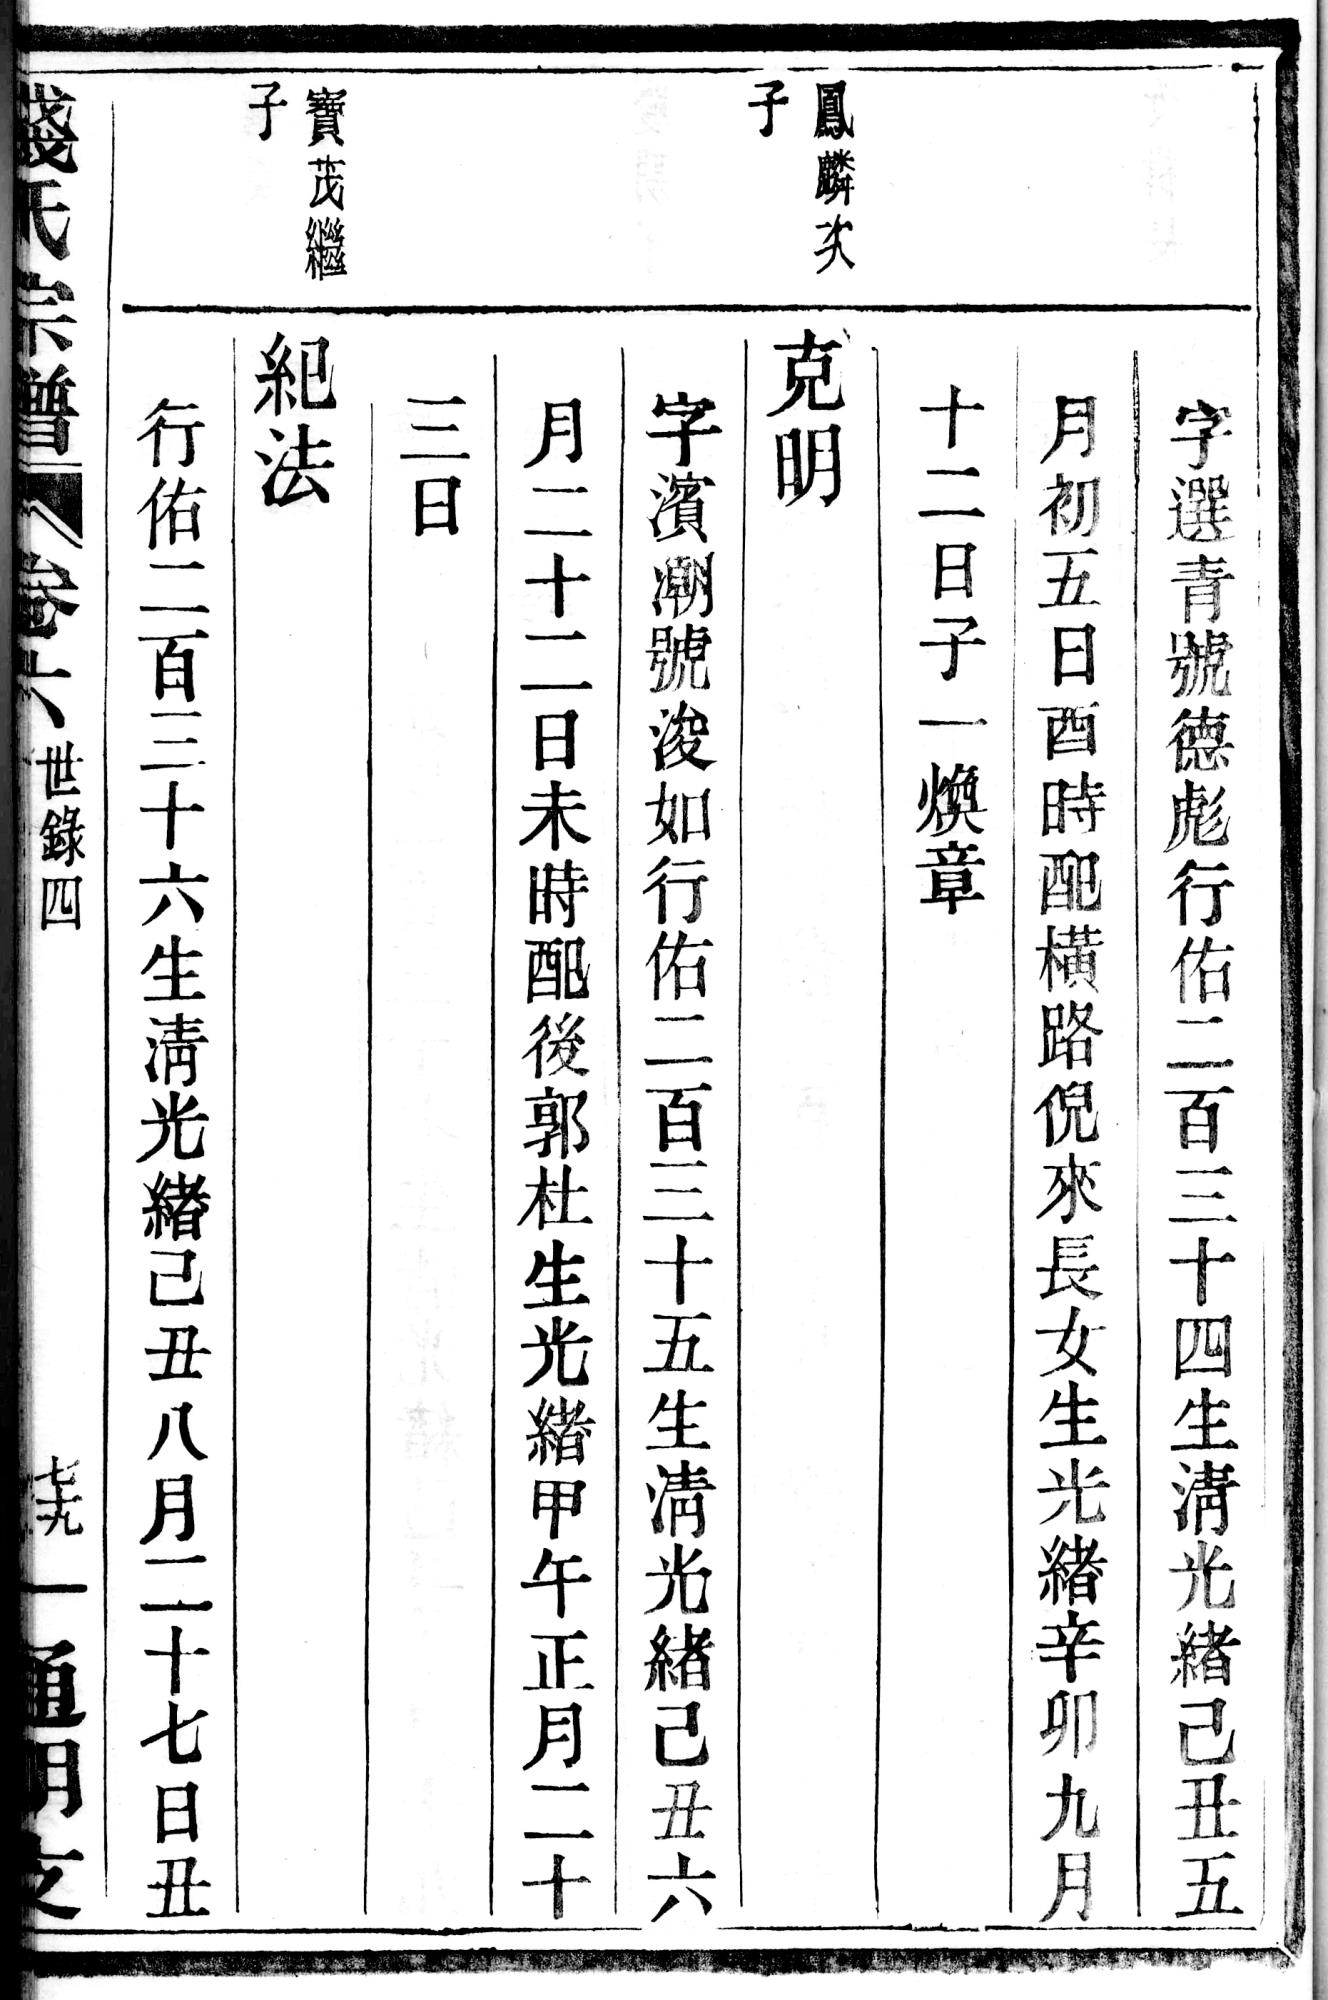 字選青號德彪行佑二百三十四生淸光緖己丑五
月初五日酉時配橫路倪來長女生光緖辛卯九月
十二日子一煥章
鳳麟次
子
克明
字濱潮號浚如行佑二百三十五生淸光緖己丑六
月二十二日未時配後郭杜生光緖甲午正月二十
三日
寶茂繼
子
紀法
行佑二百三十六生淸光緖己丑八月二十七日丑
錢氏宗譜
卷六
世錄四
七十九
一
通明支